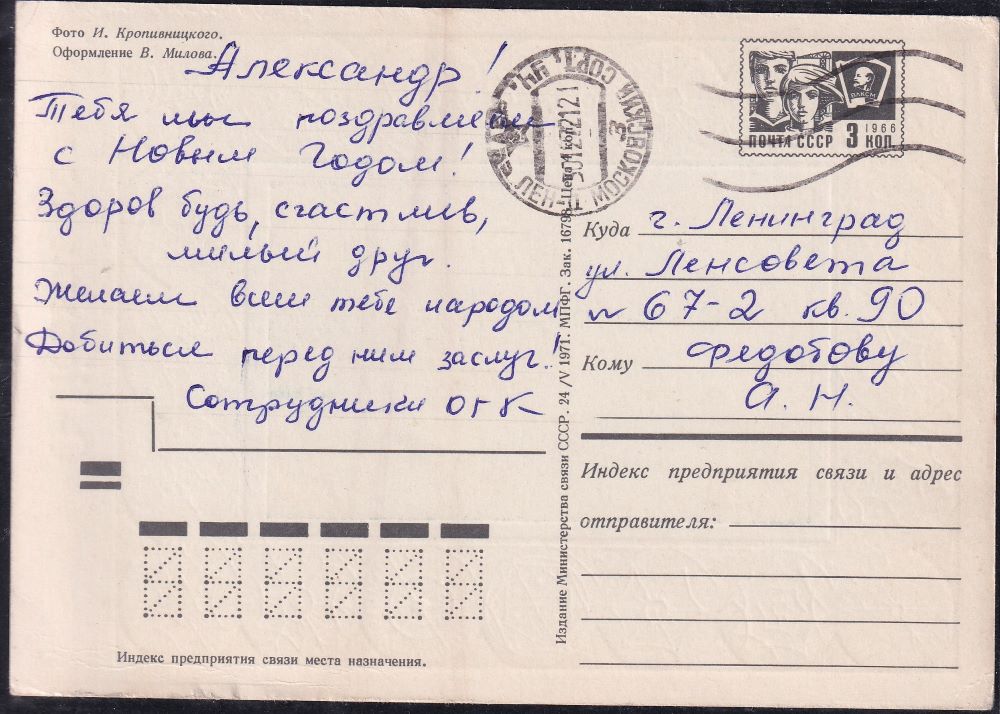 Фото И. Кропивницкого.
Оформление В. Милова.
Александр!
Тебя мы поздравляем
с Новым Годом!
Здоров будь, счастлив,
милый друг.
Желаем всем тебе народом
Добиться перед ним заслуг!
Сотрудники ОГК
ПОЧТА СССР 3 КОП.
1966
ВЛКСМ
ЛЕН-Д МОСКОВСКИЙ СОРТ.
3
Куда г. Ленинград
ул. Ленсовета
67-2 кв. 90
Кому Федотову
А. Н.
Индекс предприятия связи и адрес
отправителя:
Издание Министерства связи СССР. 24/V 1971. МПФГ. Зак. 16798. Цена 4 коп.
Индекс предприятия связи места назначения.